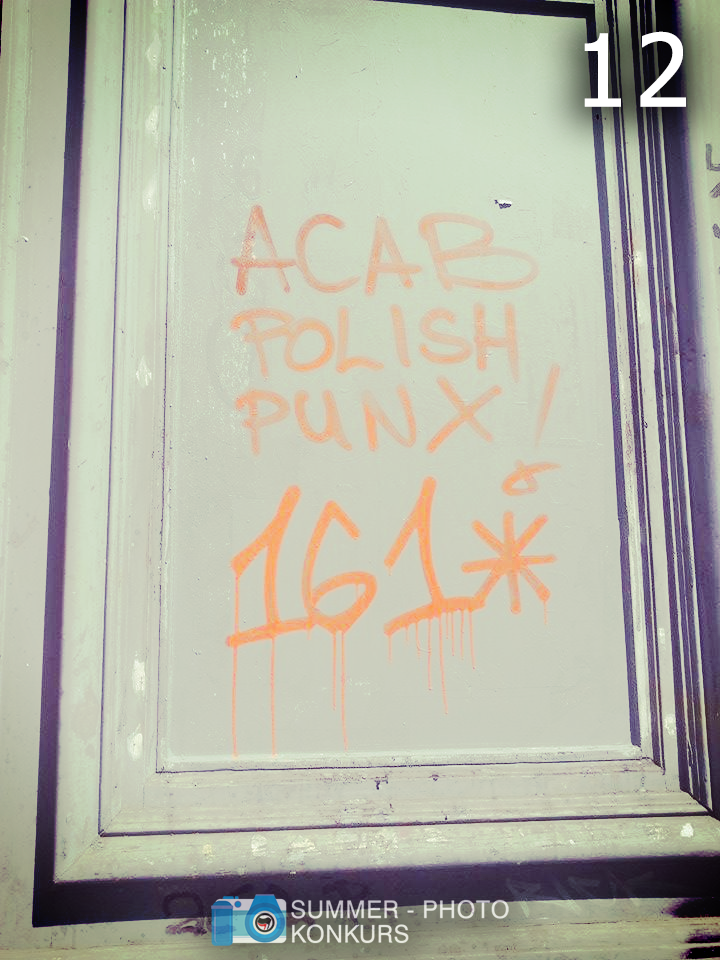 12
ACAB
POLISH
PUNX!
161*
SUMMER - PHOTO
KONKURS